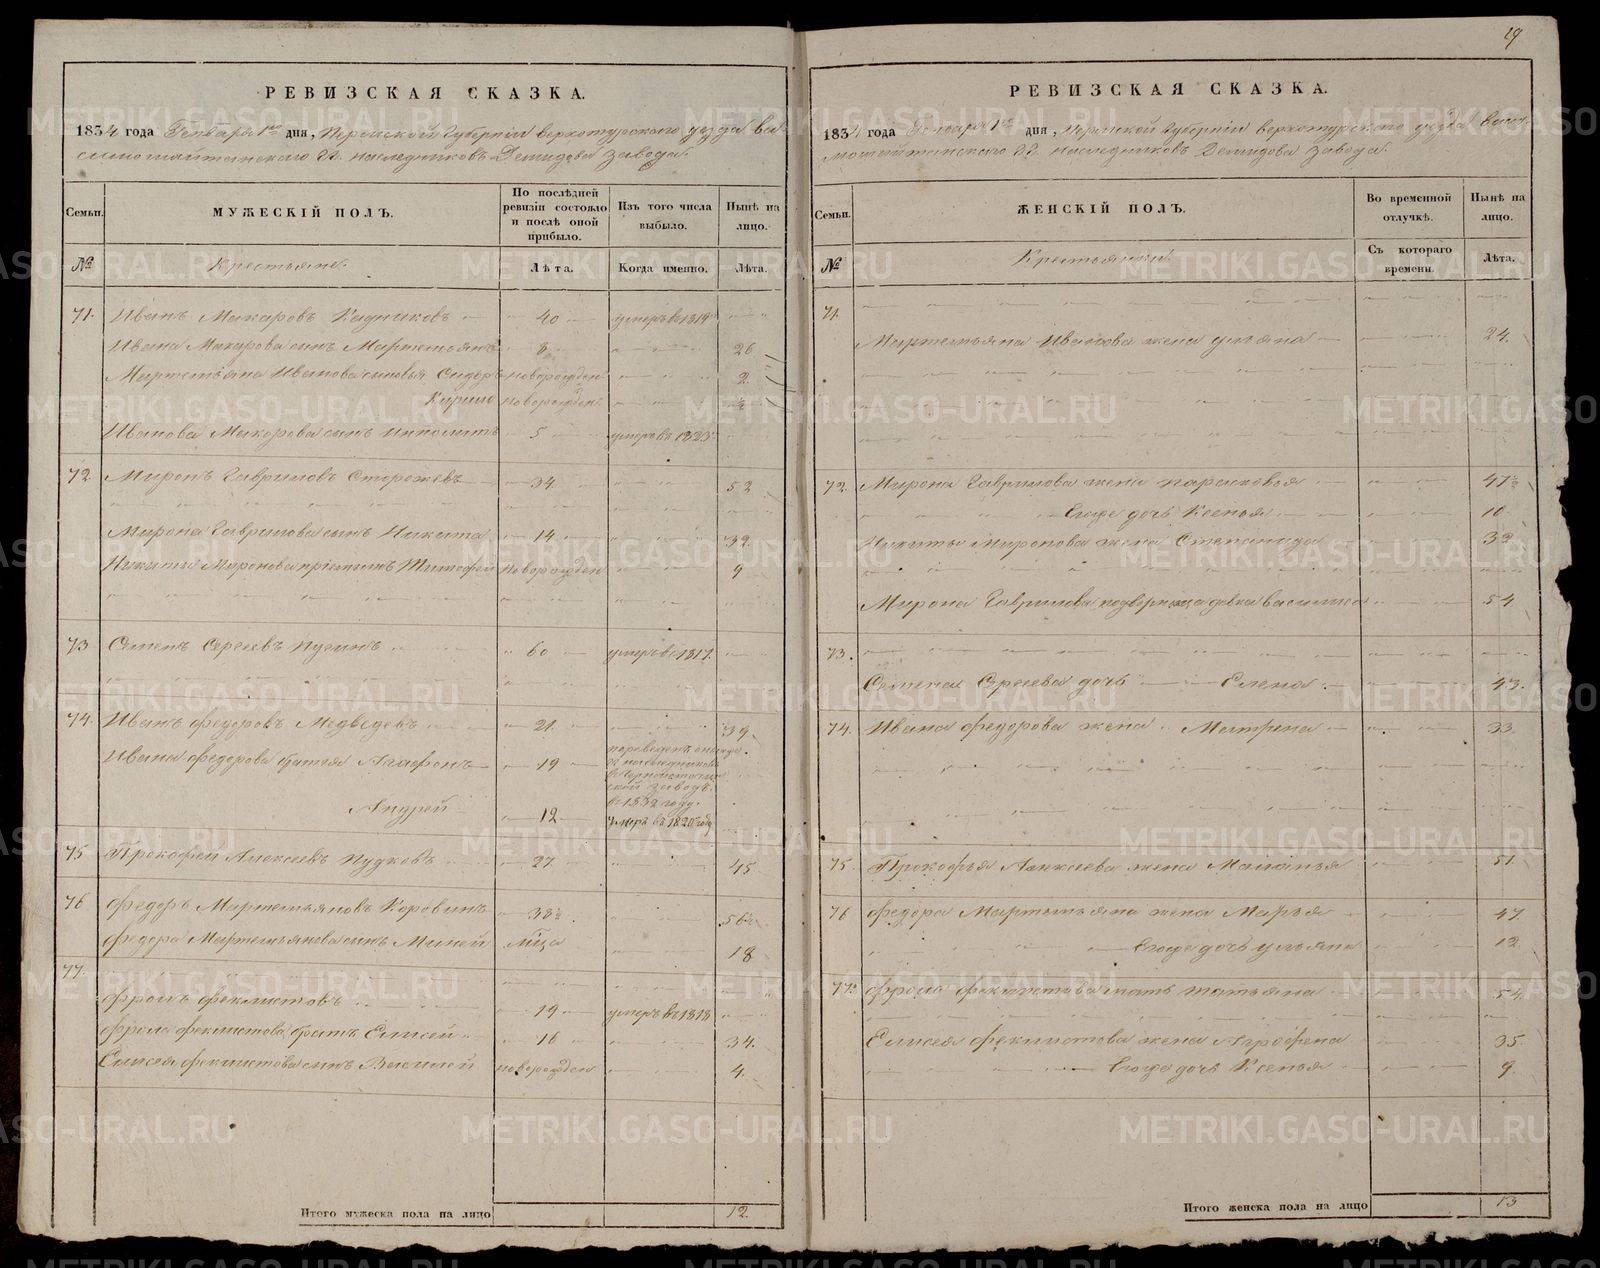 19
РЕВИЗСКАЯ СКАЗКА.
1834 года Генваря 1го дня, Пермской Губернии верхотурского уезда ви
симошайтанского Гг. наследниковъ Демидова завода.
Семьи. МУЖЕСКІЙ ПОЛЪ. По послѣдней ревизіи состояло и послѣ оной прибыло. Изъ того числа выбыло. Нынѣ на лицо.
№ Крестьяне. Лѣта. Когда именно. Лѣта.
71. Иванъ Макаровъ Кадниковъ 40 умеръ в 1814
Ивана Макарова сынъ Мартемьянъ 8 26
Мартемьяна Иванова сыновья Сидоръ новорожден 2
новорожден ½
Иванова Макарова сынъ Иполитъ 5 умеръ въ 1823
72 Миронъ Гавриловъ Сторожевъ 34 52
Мирона Гаврилова сынъ Никита 14 32.
Никиты Миронова Тимофей новорожден 9
73 Семенъ Сергеевъ 60 умеръ в 1817.
74. Иванъ федоровъ Медведевъ 21 39
Ивана федорова братья Агафонъ 19 переведенъ
заводъ
в 1832 году.
Андрей 12 Умеръ въ 1820 году
75 Прокофей Алексеевъ Пудковъ 27 45
76 федоръ Мартемьяновъ Коровинъ 38½ 56½
федора Мартемьянова сынъ Миней м҃ца 18
77.
фролъ феклистовъ 19 умеръ в 1818
фрола феклистова братъ Елисей 16 34.
Елисея феклистова сынъ Василей новорожден 4
Итого мужеска пола на лицо 12
РЕВИЗСКАЯ СКАЗКА.
1834 года Генваря 1го дня, Пермской Губернии верхотурского уезда виси
мошайтанского Гг. наследниковъ Демидова завода.
Семьи. ЖЕНСКІЙ ПОЛЪ. Во временной отлучкѣ. Нынѣ на лицо.
№ Крестьянки. Съ котораго времени. Лѣта.
71.
Мартемьяна Иванова жена Ульяна 24.
72. Мирона Гаврилова жена Парасковья 47½
Егоже дочь Ксенья 10
Никиты Миронова жена Степанида 32
Мирона Гаврилова девка Василиса 54
73.
Семена Сергеева дочь Елена 43.
74. Ивана федорова жена Матрена 33
75. Прокофья Алексеева жена Маланья 51.
76 федора Мартемьяна жена Марья 47.
Егоже дочь Ульяна 12
77. фрола феклистова мать Татьяна 54.
Елисея феклистова жена Агрофена 35.
Егоже дочь Ксенья 9.
Итого женска пола на лицо 13
METRIKI.GASO-URAL.RU